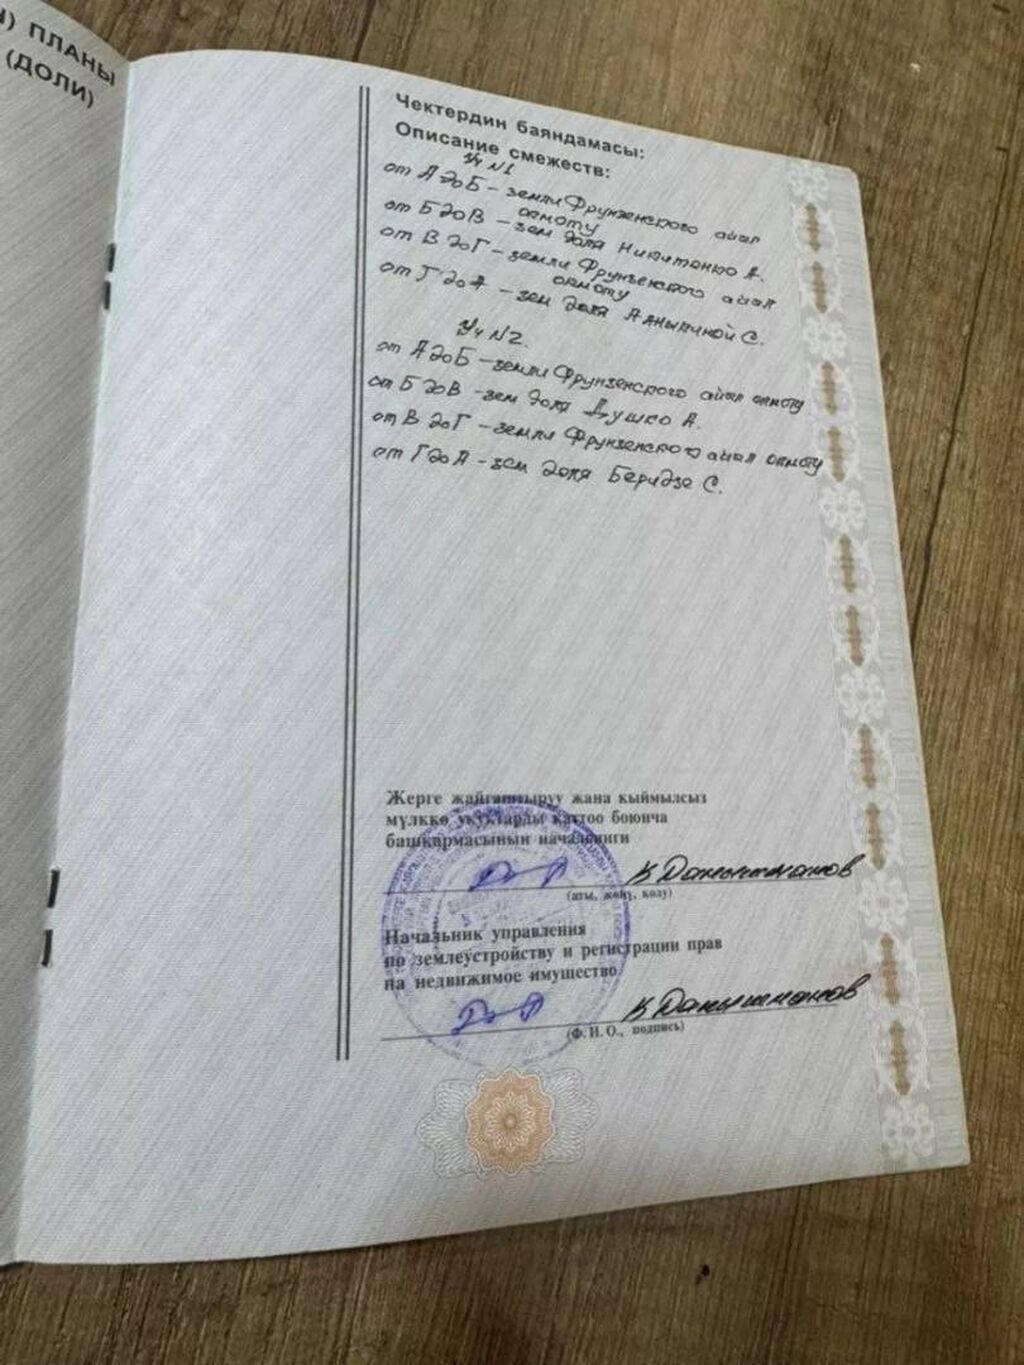 ПЛАНЫ
(ДОЛИ)
Чектердин баяндамасы:
Описание смежеств:
Уч N1
от А до Б - земли Фрунзенского айыл
окмоту
от Б до В - зем доля Никитенко А.
от В до Г - земли Фрунзенского айыл
окмоту
от Г до А - зем доля С.
Уч N2.
от А до Б - земли Фрунзенского айыл окмоту
от Б до В - зем доля Душко А.
от В до Г - земли Фрунзенского айыл окмоту
от Г до А - зем доля Беридзе С.
Жерге жайгаштыруу жана кыймылсыз
мүлккө укуктарды каттоо боюнча
башкармасынын начальниги
К Данышманов
(аты, жөнү, колу)
Начальник управления
по землеустройству и регистрации прав
на недвижимое имущество
К Данышманов
(Ф. И. О., подпись)